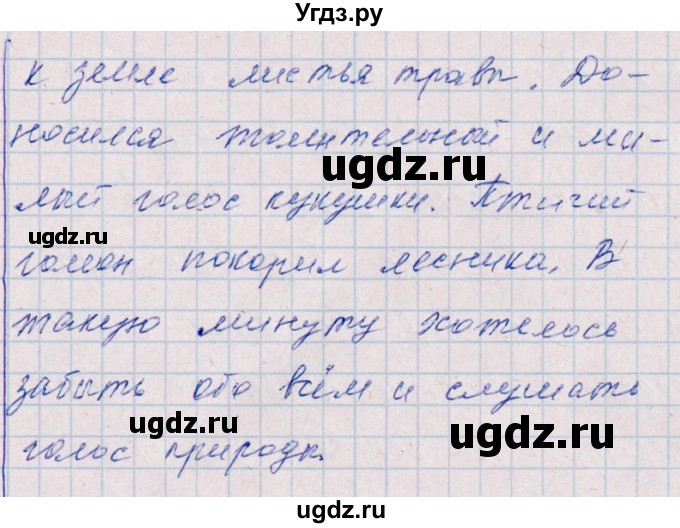 Угдз.ру
к земле листья травы. До-
носился томительный и ми-
ugdz.ru
лый голос кукушки. Птичий
ugdz.ru
гомон покорил лесника. В
такую минуту хотелось
забыть обо всём и слушать
ugdz.ru
ugdz.ru
голос природы.
ugdz.ru